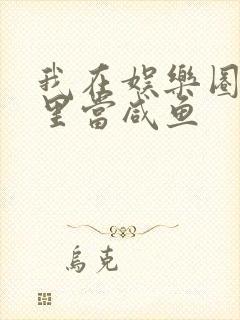 我在娱樂圈
里當咸鱼
烏克